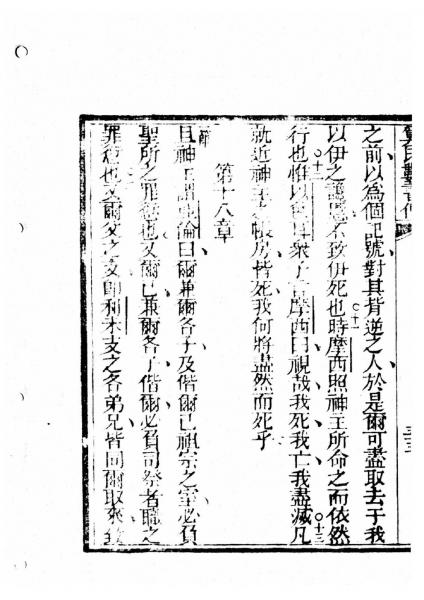 之前以為個記號對其背逆之人於是爾可盡取去于我
以伊之 不致伊死也時摩西照神主所命之而依然
行也惟以 耳眾子 摩西曰視哉我死我亡我盡滅凡
就近神主 帳房 皆死我何將盡然而死乎
第十八章
且神主謂 論曰爾兼爾各子及偕爾己祖宗之室必負
聖所之罪 也又爾己兼爾各子偕爾必負司祭者職之
罪 也又爾父之支即利未支之各弟兄皆同爾取來